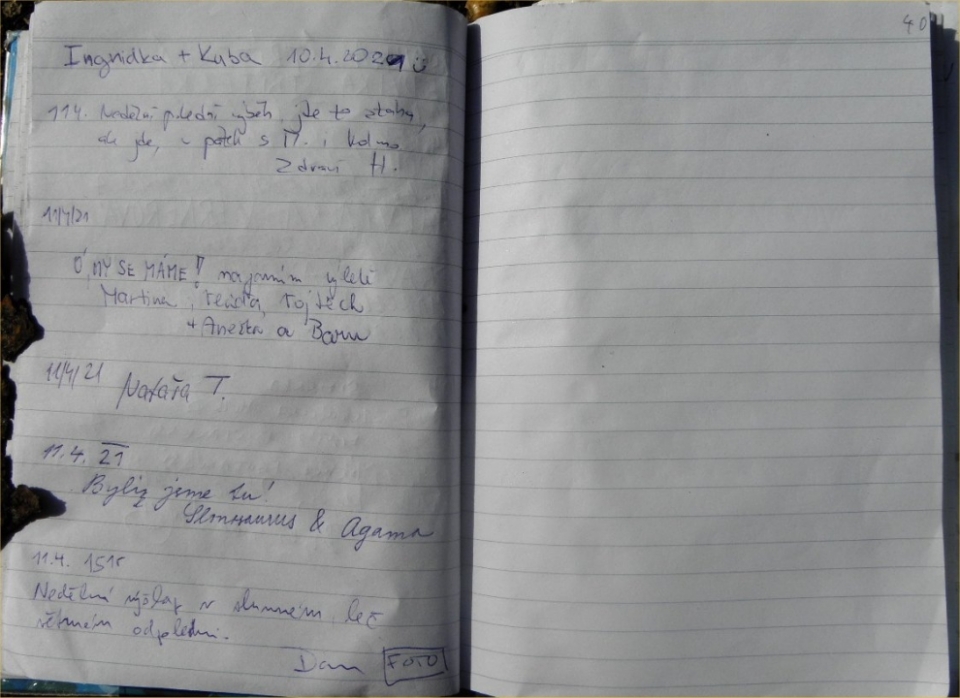 Ingridka + Kuba 10.4.2021
11.4. Nedělní polední výběh, jde to ztuha,
ale jde, v pátek s M. i kolmo
Zdraví H.
11/4/21
Ó, MY SE MÁME! na jarním výletě
Martina, Vojtěch
+ Anežka a Bára
11/4/21 Nataša T.
11.4. 21
Byliz jsme tu!
Slonosaurus & Agama
11.4. 1515
Nedělní výšlap v slunném, leč
větrném odpoledni.
Dan FOTO
40